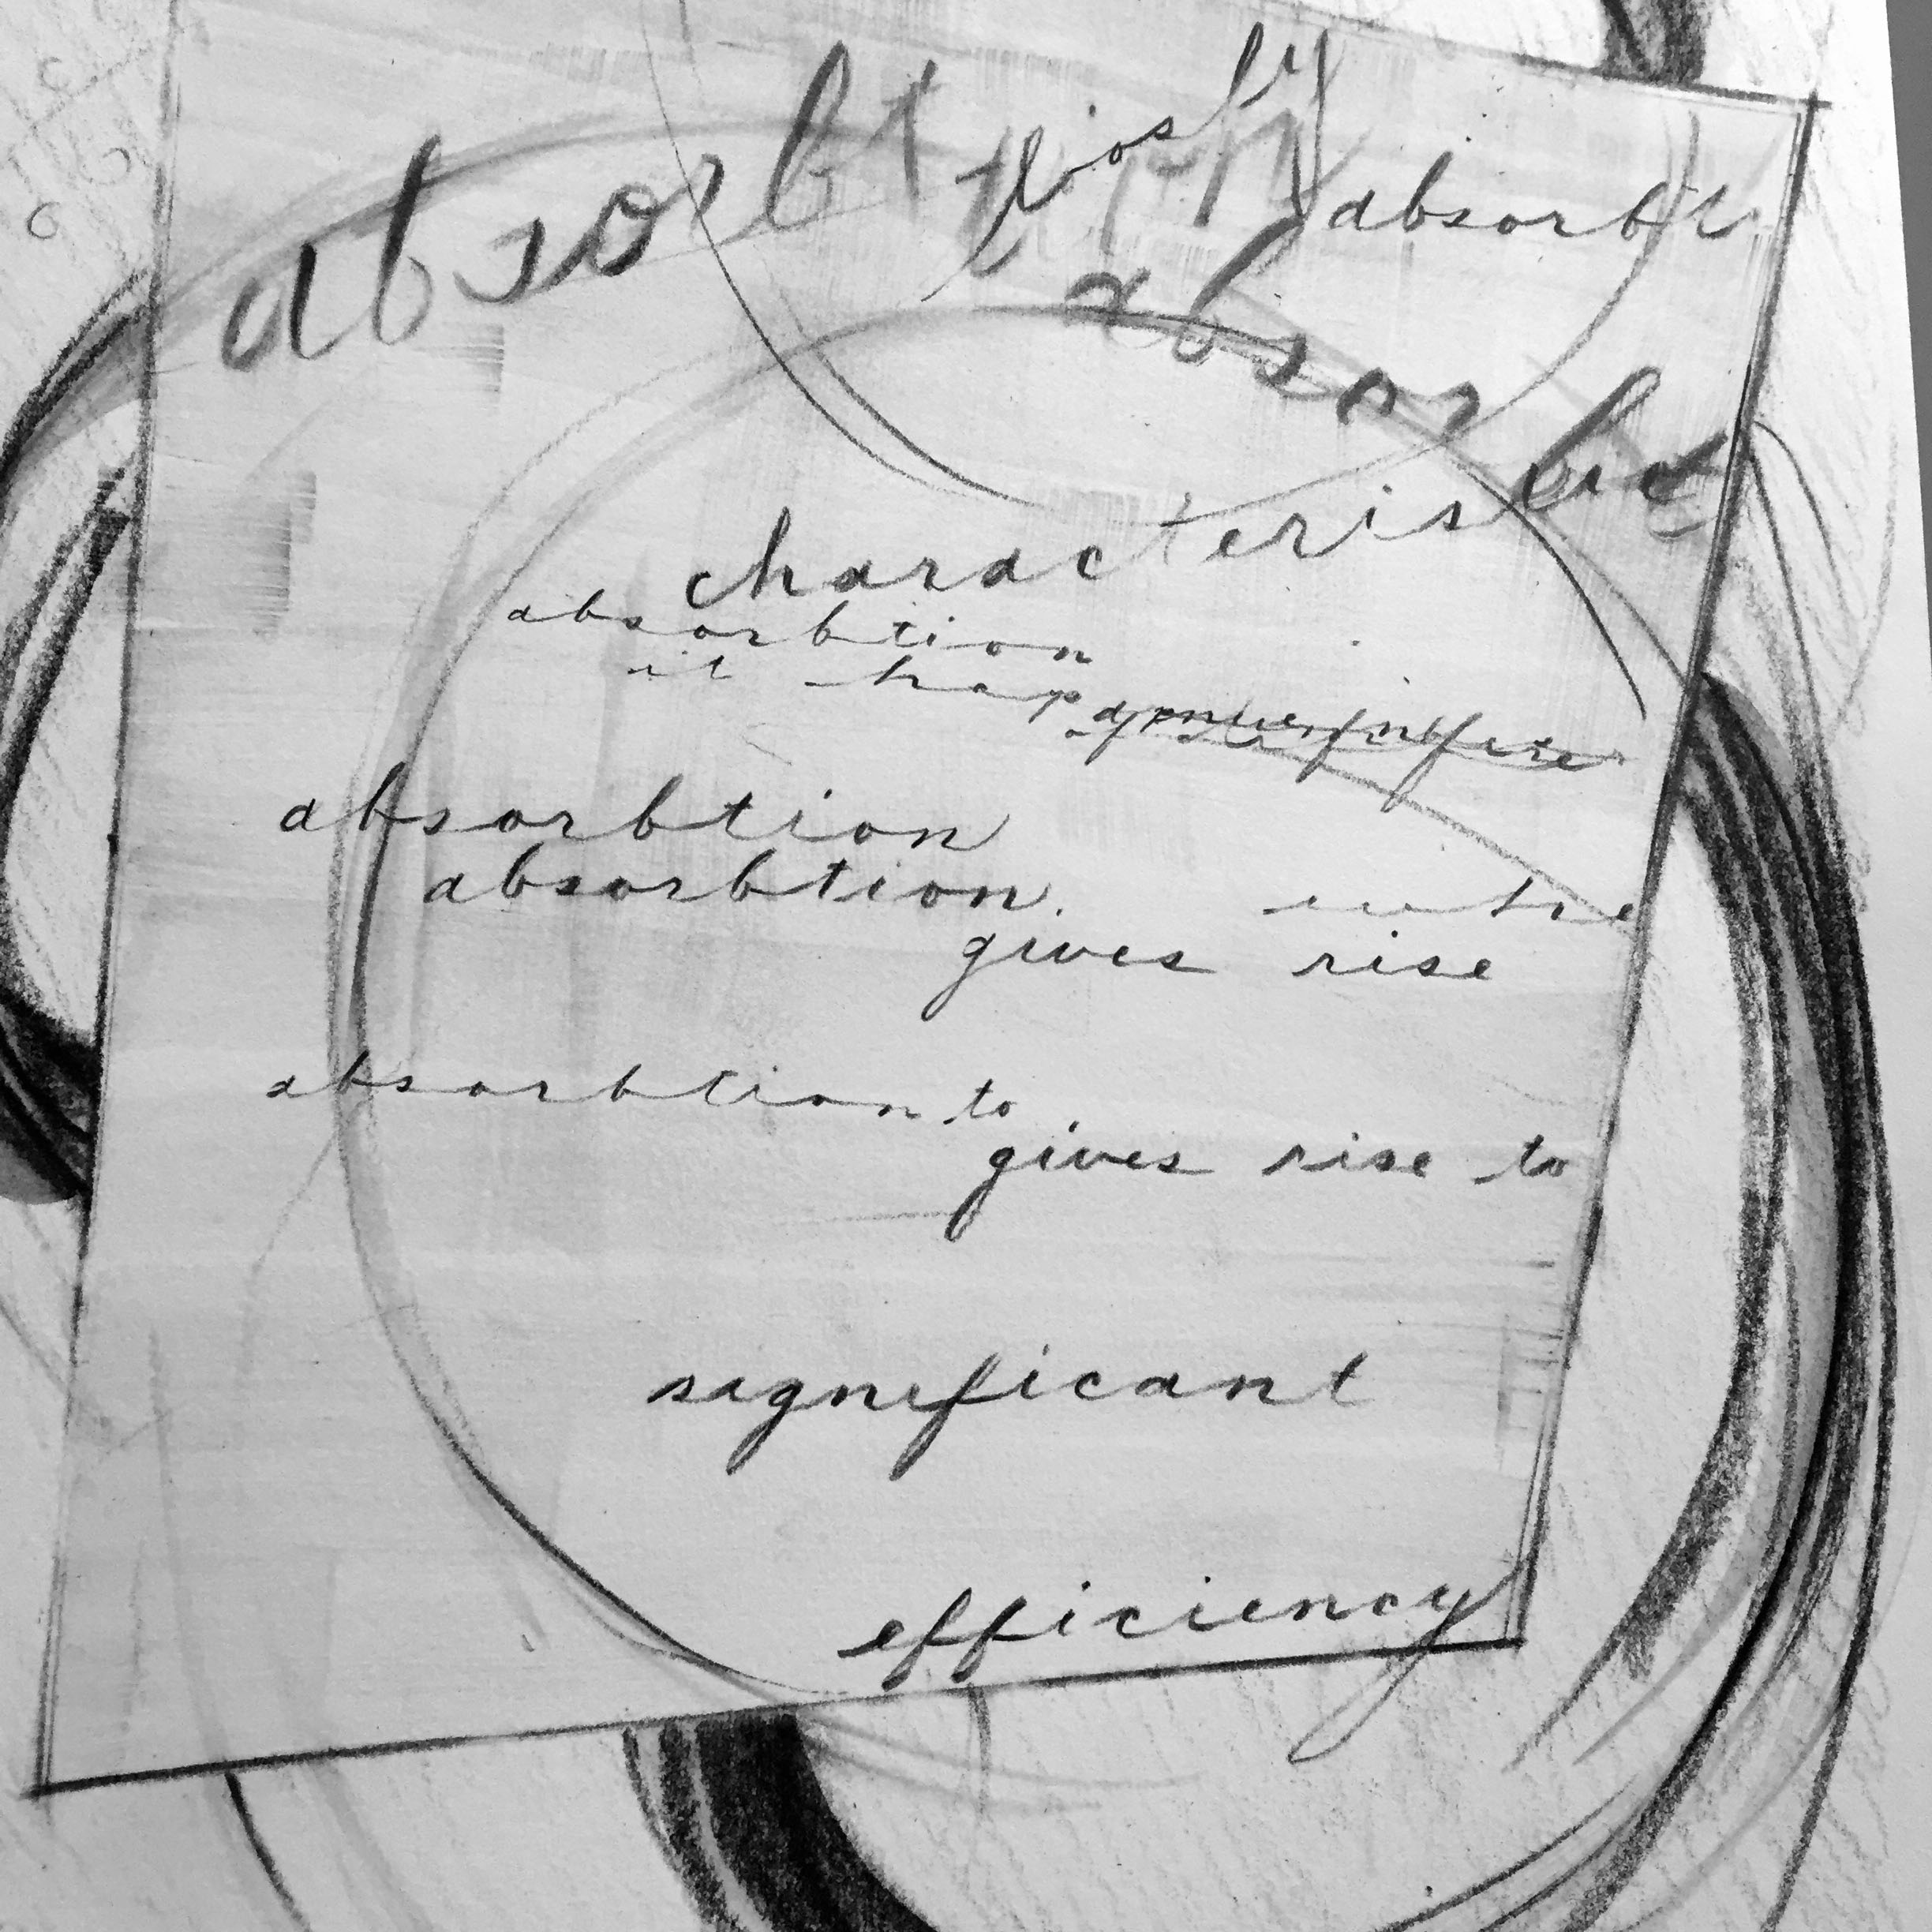 absorbt
absorb
absorb
characteris
absorbtion
it hap
absorbtion
absorbtion.
gives rise
absorbtion to
gives rise to
significant
efficiency